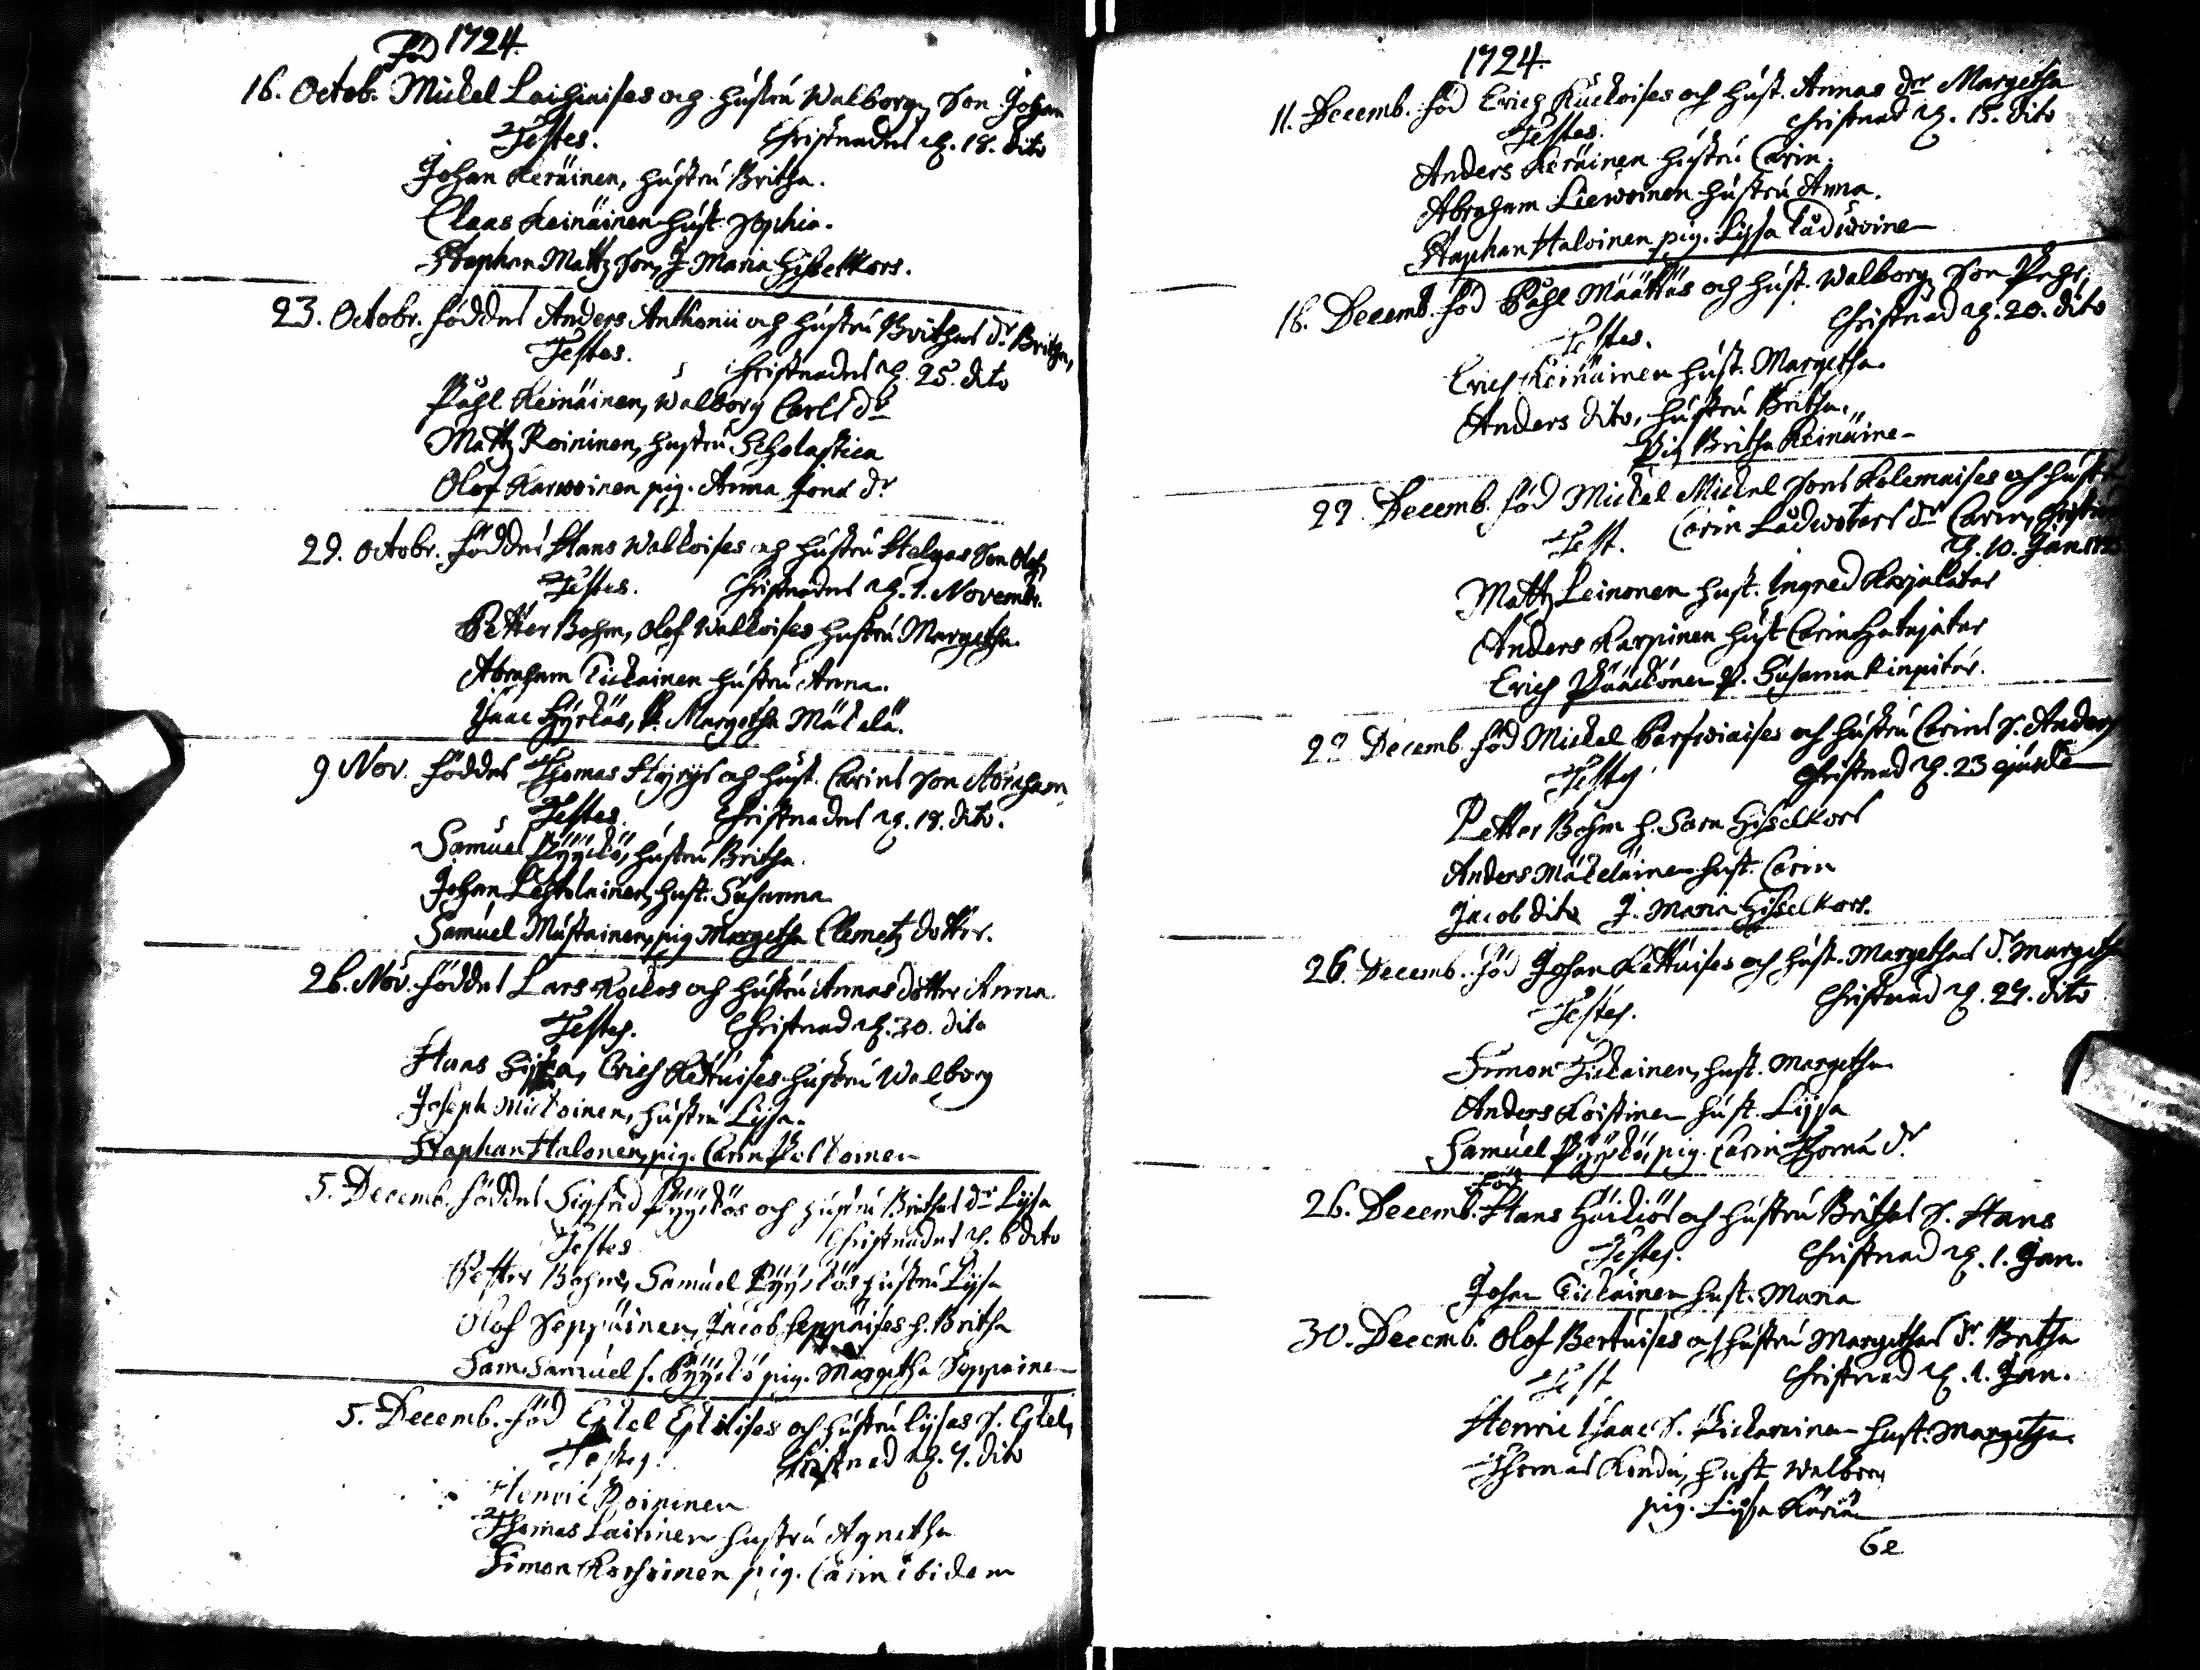 Föd 1724.
16. Octob. Mickel Laihiaises och hustru Walborgz Son Johan
Testes. Christnades d. 18. dito
Johan Keräinen, hustru Britha.
Claas Keinäinen hust. Sophia.
Staphan Mattz Son, J. Maria Hisselkors.
23. Octobr. föddes Anders Anthonii och hustru Brithas dr Britha,
Testes. Christnades d. 25. dito
Påhl Keinäinen, Walborg Carls dr
Mattz Roininen, hustru Scholastica
Olof Karwoinen pig. Anna Jons dr
29. Octobr. föddes Hans Walkoises och hustru Helgas Son Olof,
Testes. Christnades d. 1. Novembr.
Petter Bohm, Olof Walkoises hustru Margetha.
Abraham Tickainen hustru Anna.
Isaac Hyrkäs, P. Margetha Mäkelä.
9 Nov. föddes Thomas Hyrys och hust. Carins Son Abraham
Testes. Christnades d. 18. dito.
Samuel Pyyckö, hustru Britha.
Johan Lehtolainen, hust. Susanna
Samuel Mustainen, pig Margetha Clemetz dotter.
26. Nov. föddes Lars Kockos och hustru Annas dotter Anna.
Testes. Christnad d. 30. dito
Hans, Erich Kettuises hustru Walborg
Joseph Mickoinen, hustru Lijsa.
Staphan Halonen, pig. Carin Polckoinen
5. Decemb. föddes Sigfred Pyyckös och hustru Brithas dr Lijsa
Testes Christnades d. 6 dito
Petter Bohm, Samuel Pyyckös hustru Lijsa
Olof Seppäinen, Jacob Seppäises h. Britha
Sam. Samuel s. Pyyckö pig. Margetha Seppäine
5. Decemb. föd Eskel Eskelises och hustru Lijsas S. Eskel,
Testes. Christnad d. 7. dito
Henric Roininen
Thomas Laitinen hustru Agnetha
Simon Korhoinen pig. Carin ibidem
1724.
11. Decemb. föd Erich Kuckoises och hust. Annas dr Margetha
Testes. Christnad d. 13. dito
Anders Keräinen hustru Carin.
Abraham Liewoinen hustru Anna.
Staphan Haloinen pig. Lijsa Lådwoine
16. Decemb. föd Påhl Määttäs och hust. Walborgz Son Pehr,
Testes. Christnad d. 20. dito
Erich Keinäinen hust. Margetha.
Anders dito, hustru Britha,
Pig Britha Keinäine
22 Decemb. föd Mickel Mickels Sons Kolemaises och hust.
Test. Carin Lådwotars dr Carin, Christnad
d. 10. Januar
Mattz Leinonen hust. Ingred Karjalatar
Anders Karpinen hust Carin Hatajatar
Erich Pääcköinen P. Susanna Kinpitar.
22 Decemb. föd Mickel Parfwiaises och hustru Carins S. Anders
Testes Christnad d. 23 ejusde
Petter Bohm h. Sara Hisselkors
Anders Mäkeläinen hust. Carin
Jacob dito J. Maria Hisselkors.
26. Decemb. föd Johan Kettuises och hust. Margethas dr Margetha
Testes. Christnad d. 27. dito
Simon Tickainen, hust. Margetha
Anders Koistinen hust. Lijsa
Samuel Pyyckö, pig. Carin Thoma dr
26. Decemb. föd Hans Häikiös och hustru Brithas S. Hans
Testes. Christnad d. 1. Jan.
Johan Tickainen hust. Maria
30. Decemb. Olof Bertuises och hustru Margethas dr. Britha
Test Christnad d. 1. Jan.
Henric Isaac S. Pickarainen hust. Margetha.
Thomas Kindu, hust. Walborg
pig. Lijsa Karia
62